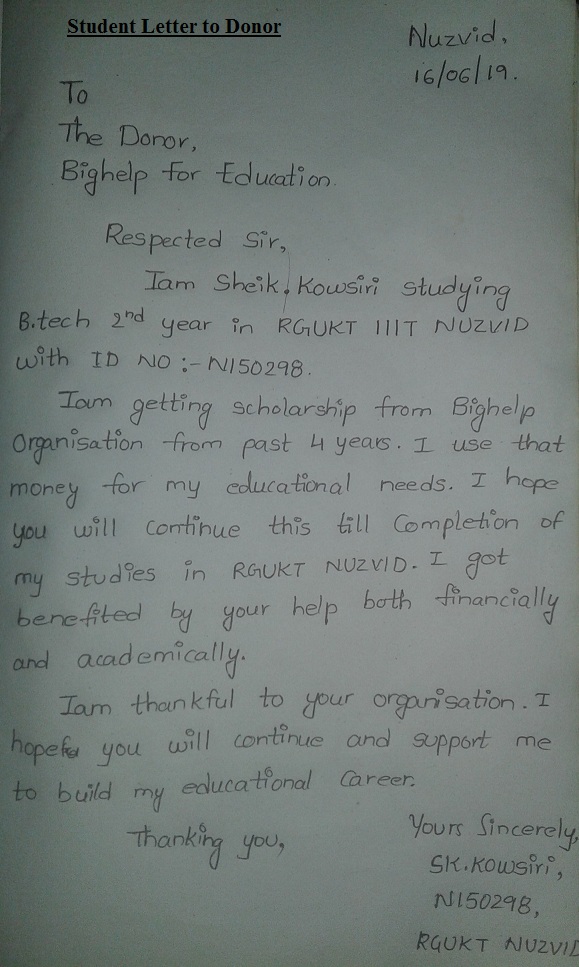 Student Letter to Donor
Nuzvid,
16/06/19.
To
The Donor,
Bighelp for Education.
Respected Sir,
Iam Sheik. Kowsiri studying
B.tech 2nd year in RGUKT IIIT NUZVID
with ID NO :- N150298.
Iam getting scholarship from Bighelp
Organisation from past 4 years. I use that
money for my educational needs. I hope
you will continue this till Completion of
my studies in RGUKT NUZVID. I got
benefited by your help both financially
and academically.
Iam thankful to your organisation. I
hope you will continue and support me
to build my educational Career.
Thanking you,
Yours Sincerely,
SK.Kowsiri,
N150298,
RGUKT NUZVID